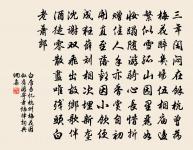 三年閑悶在餘杭曾為
梅花醉幾場伍相廟邊
繁似雪孤山園裏麗如
妝蹋隨遊騎心長惜折
贈佳人手亦香賞自初
開直至落歡因小飲便
成狂薛劉相次埋新壟
沈謝雙飛出故鄉歌伴
酒徒零散盡唯殘頭白
老蕭郎
白居易憶杭州梅花因
敘舊遊寄蕭協律